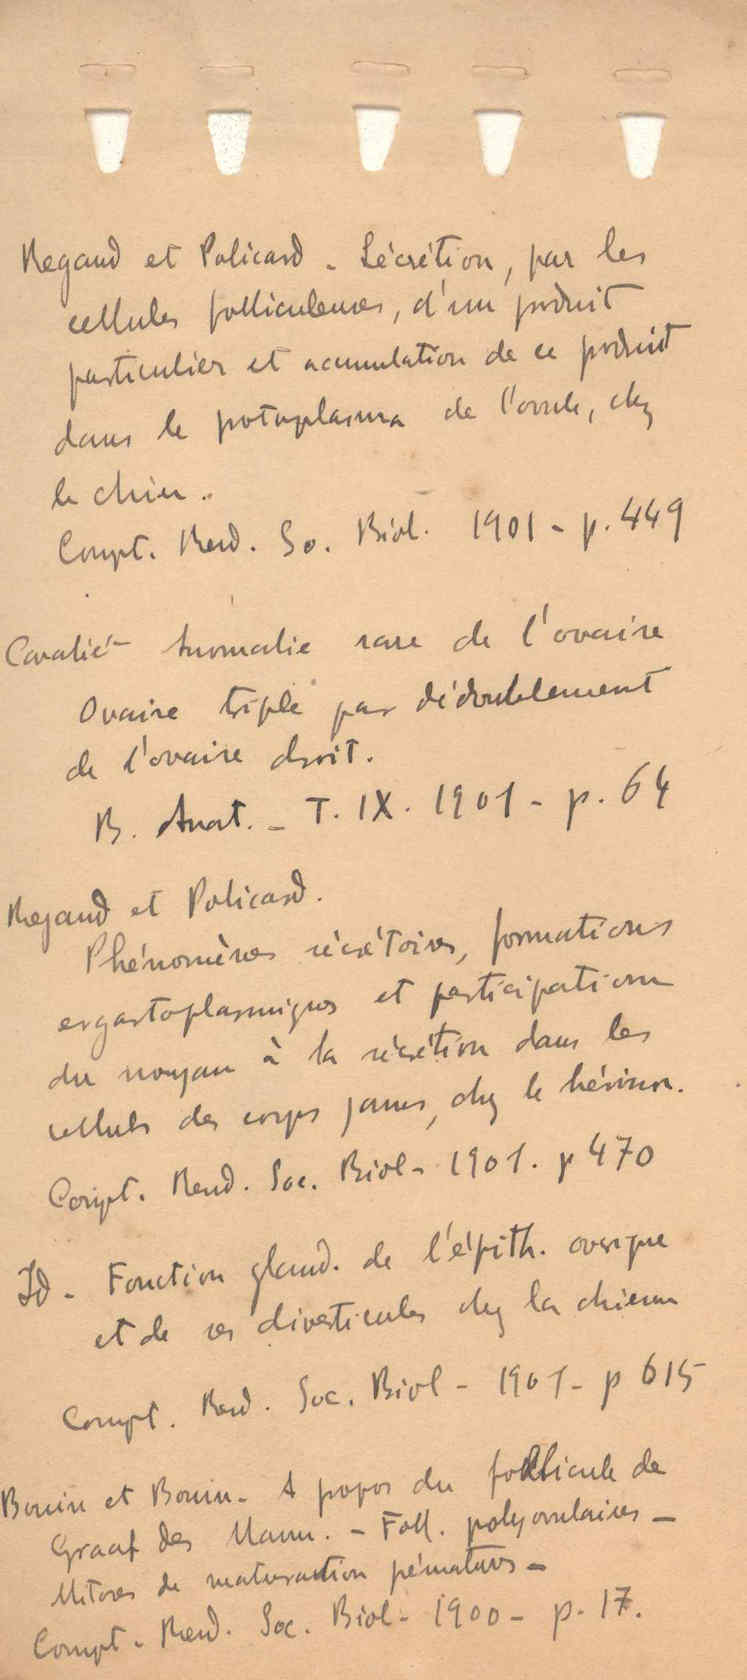 Regaud et Policard - Sécrétion, par les
cellules folliculeuses, d'un produit
particulier et acumulation de ce produit
dans le potoplasma de l'ovule, chez
le chien.
Compt. Rend. So. Biol. 1901 - p. 449
Cavalié - Anomalie rare de l'ovaire
Ovaire triple par dédoublement
de l'ovaire droit.
B. Anat. - T. IX. 1901 - p. 64
Regaud et Policard.
Phénomènes sécrétoires, formations
ergastoplasmiques et participation
du noyau à la sécrétion dans les
cellules des corps jaunes, chez le hérisson.
Compt. Rend. Soc. Biol - 1901. p 470
Id - Fonction gland. de l'épith. ovarique
et de ses diverticules chez la chienne
Compt. Rend. Soc. Biol - 1901 - p 615
Bouin et Bouin - A popos du follicule de
Graaf des Mamm. - Foll. polyovulaires -
Mitoses de maturation pématures -
Compt - Rend. Soc. Biol - 1900 - p. 17.